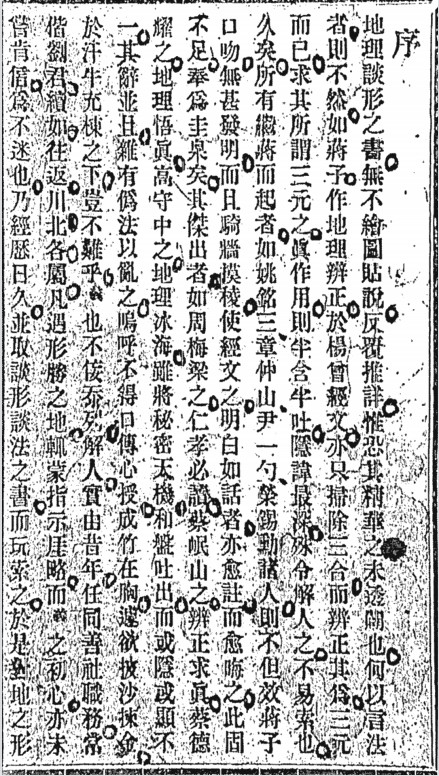 序
地理談形之書無不繪圖貼說反覆推詳惟恐其精華之未透闢也何以言法
者則不然如蔣子作地理辨正於楊曾經文亦只掃除三合而辨正其爲三元
而已求其所謂三元之眞作用則半含半吐隱諱最深殊令解人之不易索也
久矣所有繼蔣而起者如姚銘三章仲山尹一勺榮錫勳諸人則不但效蔣子
口吻無甚發明而且騎牆摸稜使經文之明白如話者亦愈註而愈晦之此固
不足奉爲圭臬矣其傑出者如周梅梁之仁孝必讀蔡岷山之辨正求眞蔡德
耀之地理悟眞高守中之地理冰海雖將秘密天機和盤吐出而或隱或顯不
一其辭並且雜有僞法以亂之嗚呼不得口傳心授成竹在胸遽欲披沙揀金
於汗牛充棟之下豈不難乎 也不佞忝列解人實由昔年任同善社職務常
偕劉君續如往返川北各屬凡遇形勝之地輒蒙指示涯略而 之初心亦未
嘗肯信爲不迷也乃經歷日久並取談形談法之書而玩索之於是 地之形